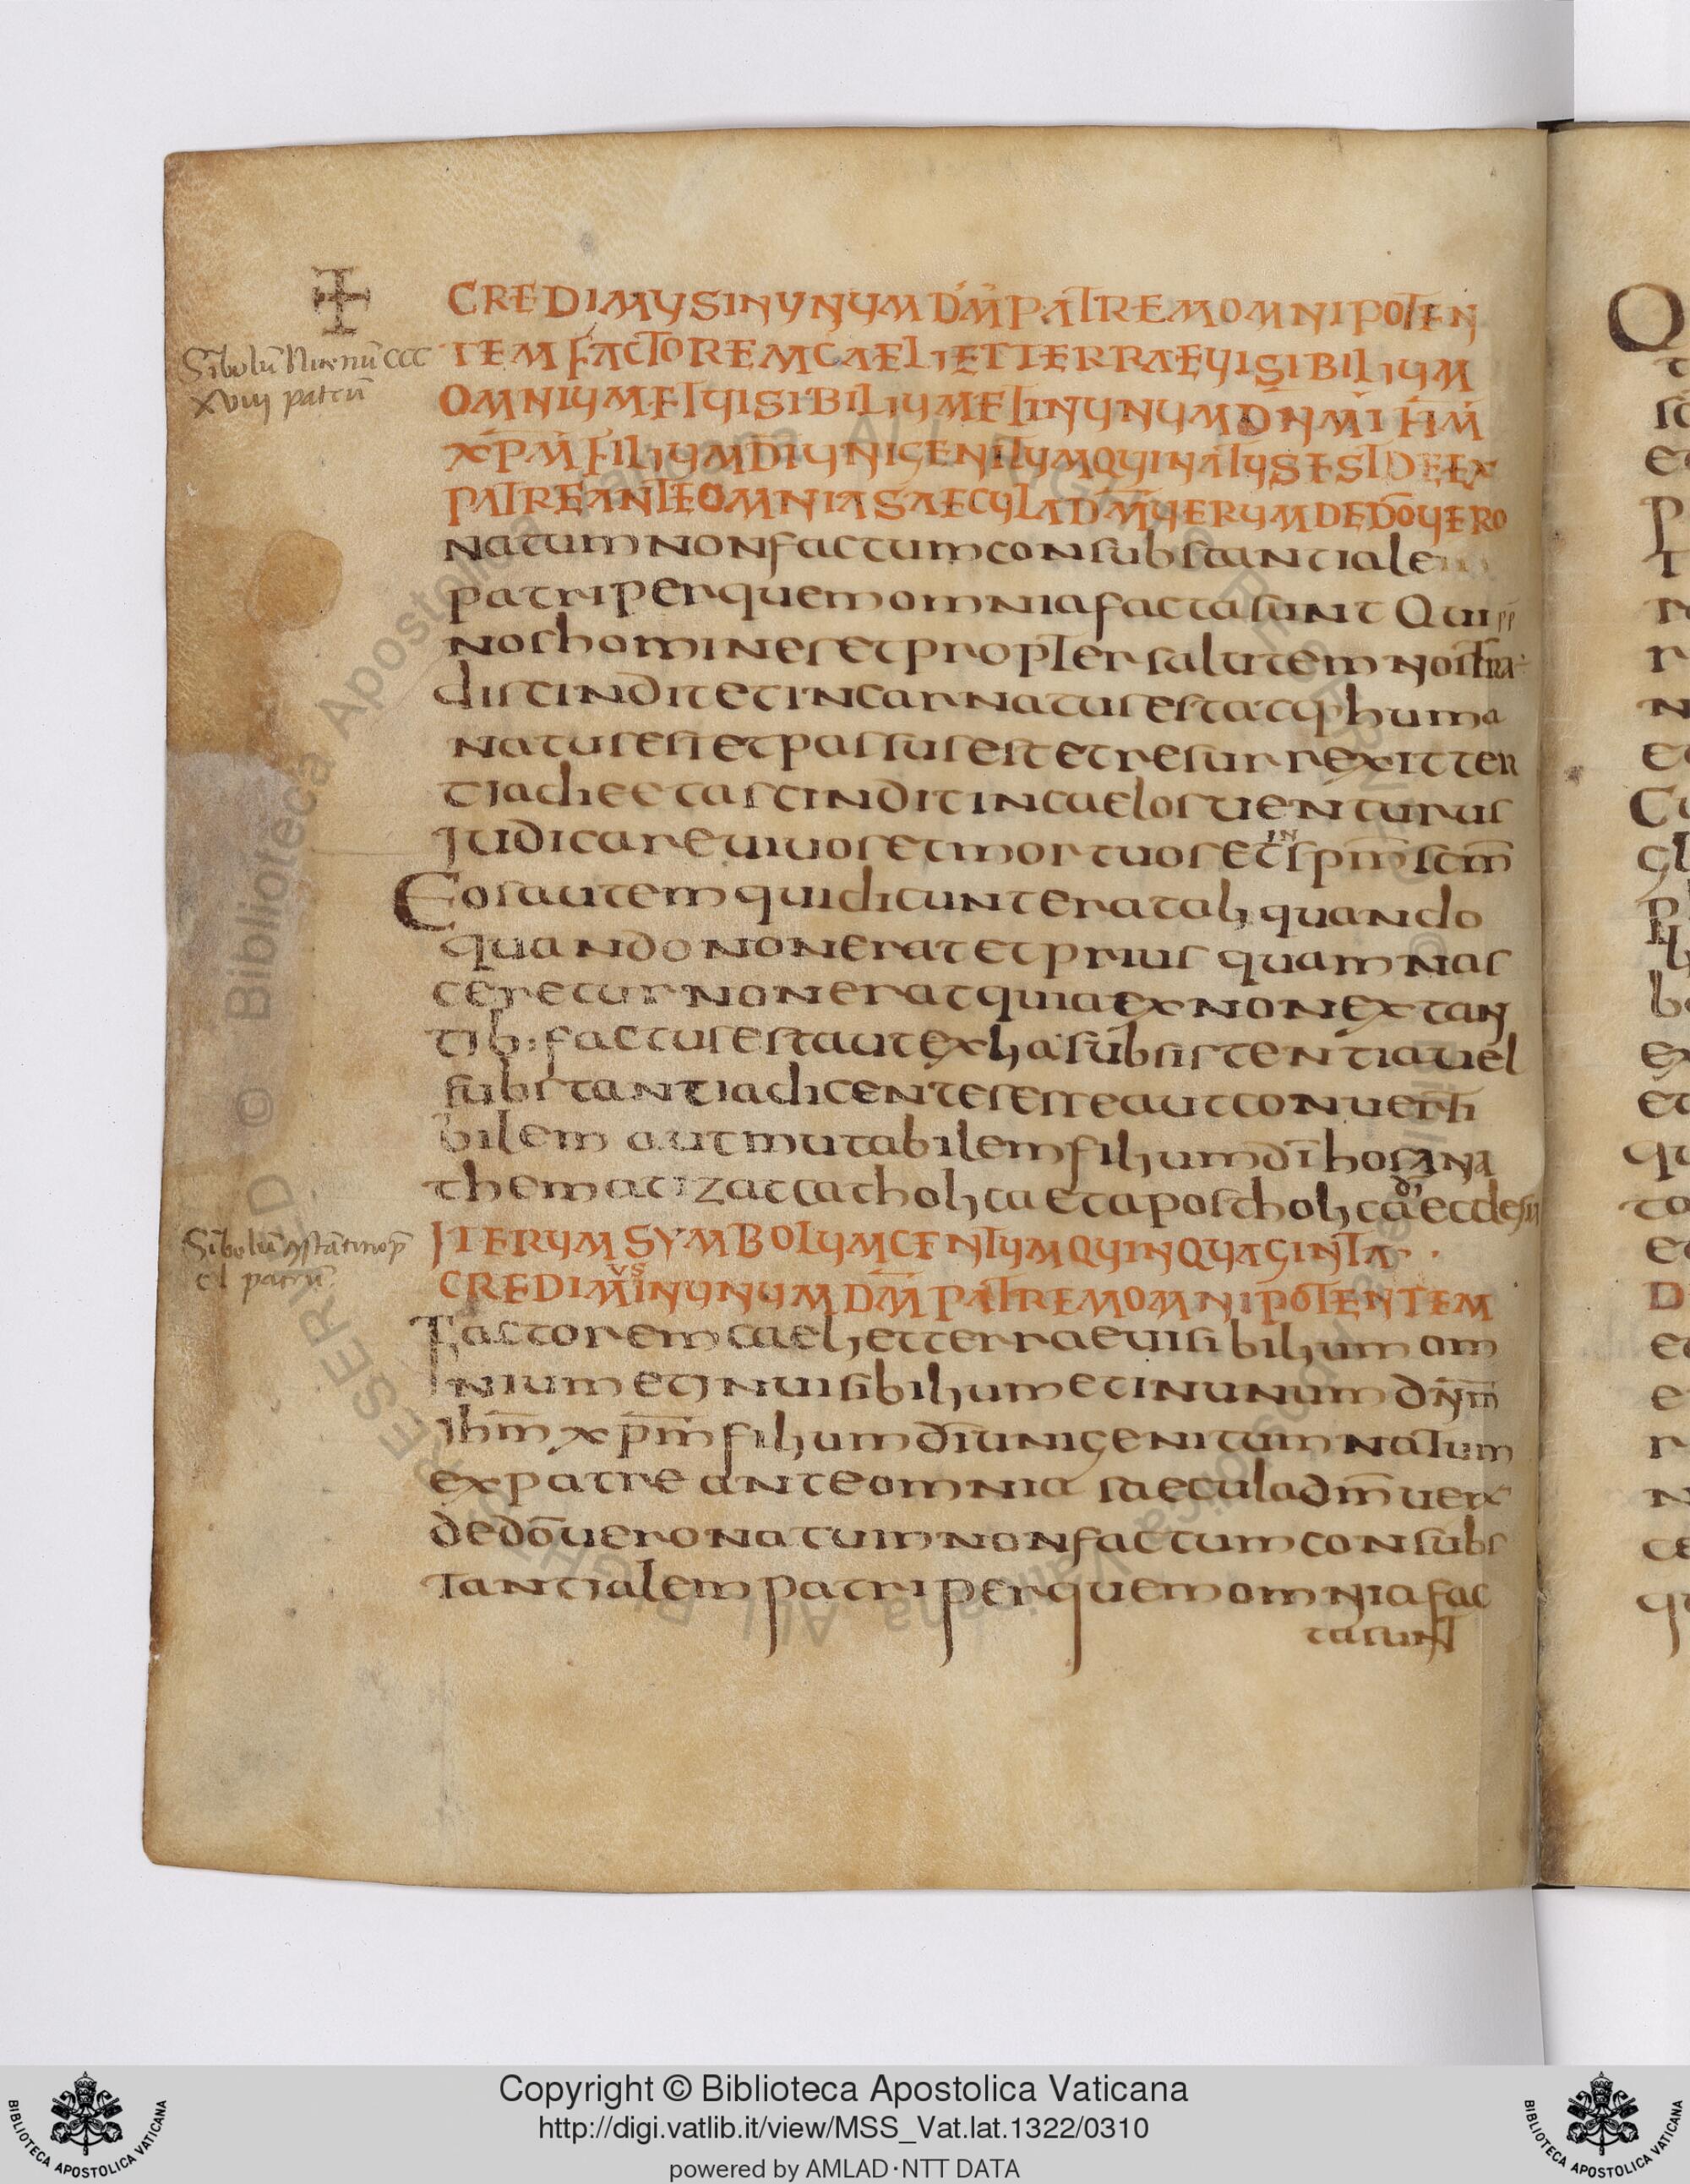 Sîbolũ Nicenũ CCC
XVIII patrũ
CREDIMUS IN UNUM DM̄ PATREM OMNIPOTEN
TEM FACTOREM CAELI ET TERRAE VISIBILIUM
OMNIUM ET VISIBILIUM ET IN UNUM DN̄M IHM̄
XPM̄ FILIUM DĪ UNIGENITUM QUI NATUS EST DE EX
PATRE ANTE OMNIA SAECULA DM̄ VERUM DE DŌ VERO
natum non factum consubstantialem
patri per quem omnia facta sunt Qui pp
nos homines et propter salutem nostrā
discindit et incarnatus est atq: huma
natus est et passus est et resurrexit ter
tia die et ascindit in caelos uenturus
judicare uiuos et mortuos et in spm̄ scm̄
Eos autem qui dicunt erat ali quando
quando non erat et prius quam nas
ceretur non erat quia ex non extan
tib: factus est aut ex lia subsistentia uel
substantia dicentes esse aut conuerti
bilem aut mutabilem filium dī hos ana
thematizat catholica et apostholica dī ecclesia
Sîbolũ cōstātinop̄
cl patrũ
ITERUM SYMBOLUM CENTUM QUINQUAGINTA
CREDIMUS IN UNUM DM̄ PATREM OMNIPOTENTEM
Factorem caeli et terrae uisibilium om
nium et inuisibilium et in unum dn̄m
ihm̄ xpm̄ filium dī unigenitum natum
ex patre ante omnia saecula dm̄ uerū
de dō uero natum non factum consubs
tantialem patri per quem omnia fac
ta sunt
Copyright © Biblioteca Apostolica Vaticana
http://digi.vatlib.it/view/MSS_Vat.lat.1322/0310
powered by AMLAD·NTT DATA
BIBLIOTECA APOSTOLICA VATICANA
BIBLIOTECA APOSTOLICA VATICANA